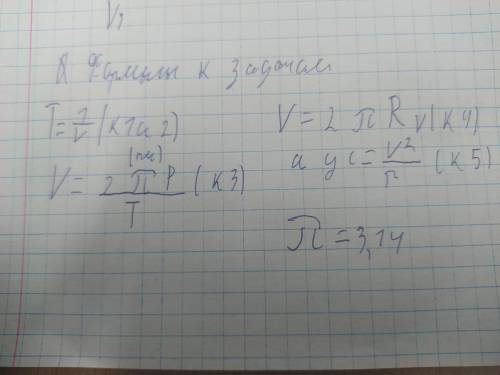 V1
А Формулы к задачам
T = 1/ν (к 1 а 2)
(пи)
V = 2 π R / T (к 3)
V = 2 π R ν (к 4)
а ус = V²/r (к 5)
π = 3,14